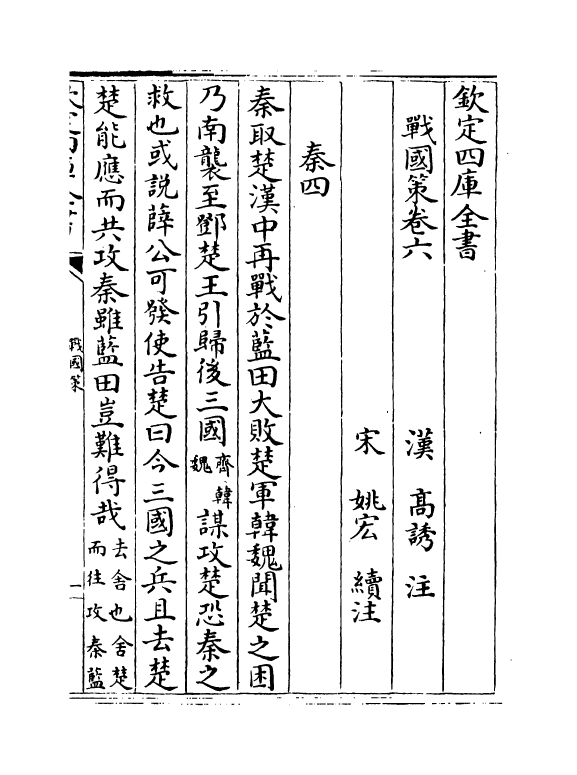 欽定四庫全書
戰國策卷六
漢 髙誘 注
宋 姚宏 續注
秦四
秦取楚漢中再戰於藍田大敗楚軍韓魏聞楚之困
乃南襲至鄧楚王引歸後三國齊韓魏謀攻楚恐秦之
救也或說薛公可發使告楚曰今三國之兵且去楚
楚能應而共攻秦雖藍田豈難得哉去舍也舍楚而往攻秦藍
戰國策
一